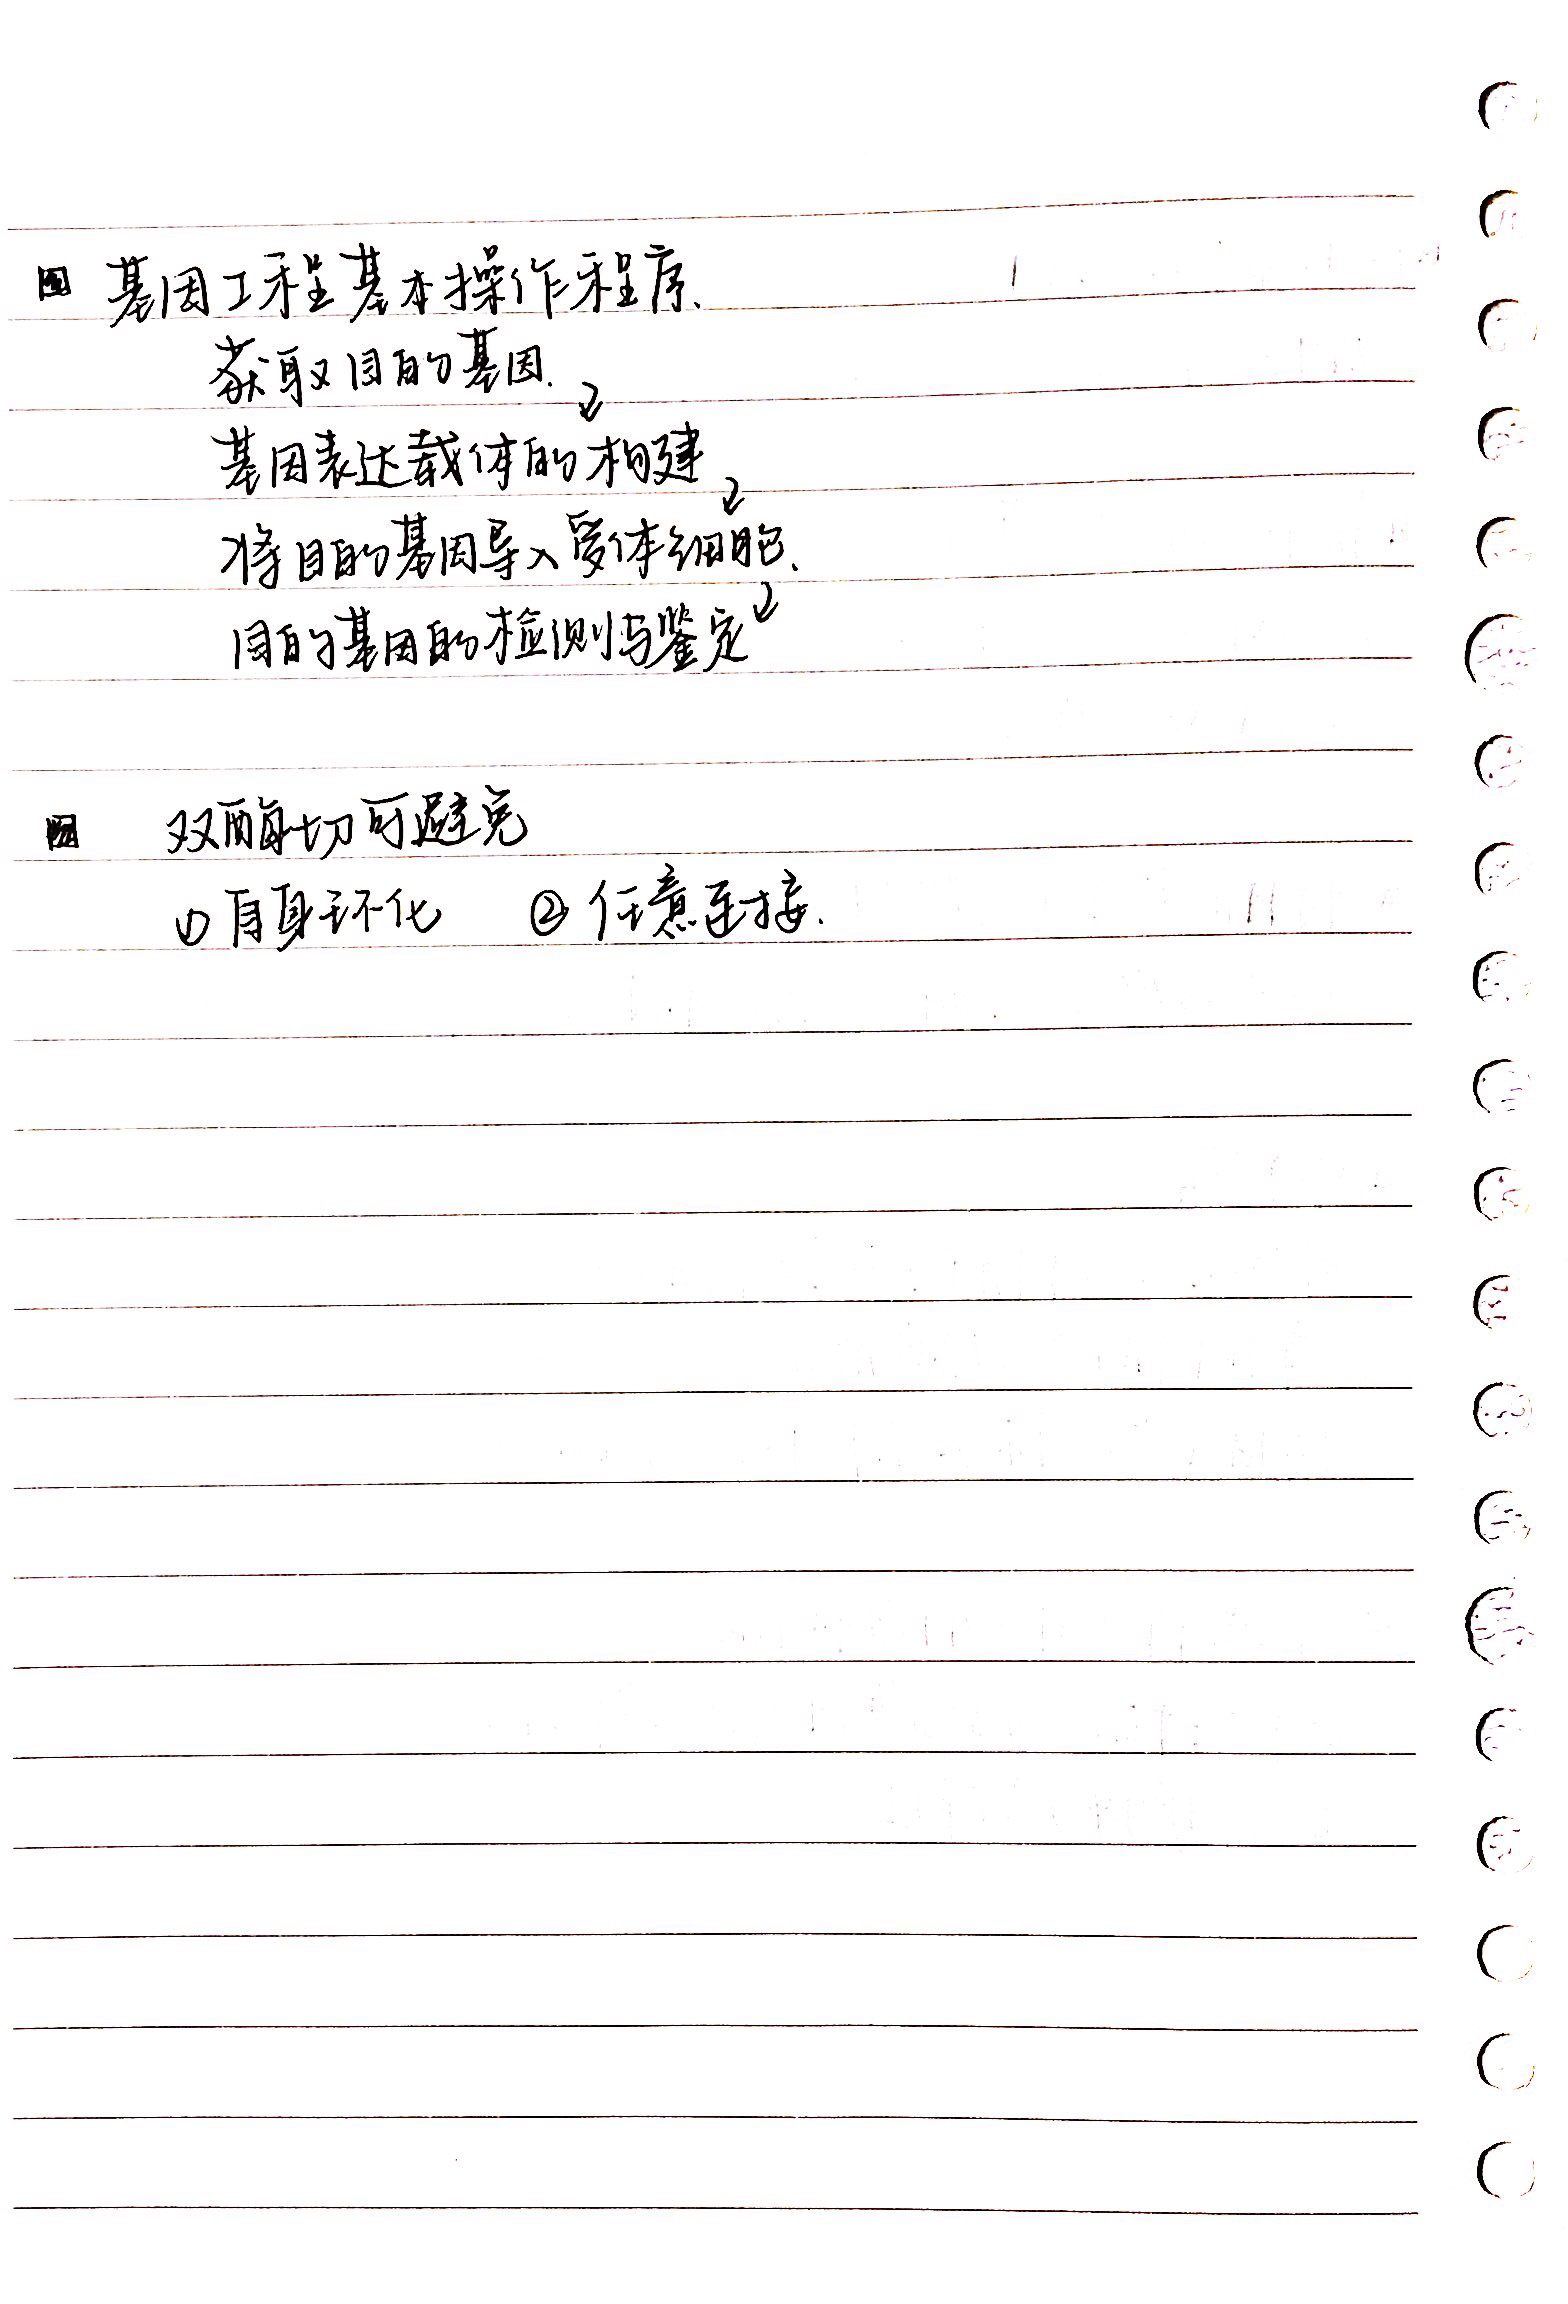 基因工程基本操作程序.
获取目的基因.
基因表达载体的构建
将目的基因导入受体细胞.
目的基因的检测与鉴定
双酶切可避免
① 自身环化 ② 任意连接.